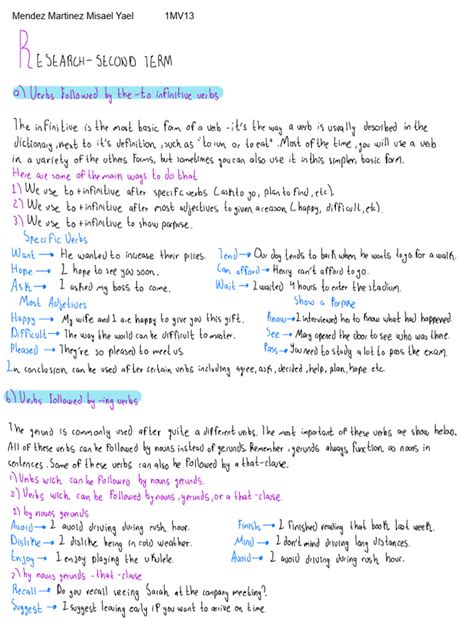 Mendez Martinez Misael Yael 1MV13
RESEARCH - SECOND TERM
a) Verbs followed by the -to infinitive verbs
The infinitive is the most basic form of a verb - it's the way a verb is usually described in the
dictionary, next to it's definition, such as "to run or to eat". Most of the time, you will use a verb
in a variety of the others forms, but sometimes you can also use it in this simpler, basic form.
Here are some of the main ways to do that
1) We use to+infinitive after specifc verbs (ask to go, plan to find, etc).
2) We use to+infinitive after most adjectives to given a reason (happy, difficult, etc).
3) We use to+infinitive to show purpose.
Specific Verbs
Want → He wanted to increase their prices. Tend → Our dog tends to bark when he wants to go for a walk.
Hope → I hope to see you soon. Can afford → Henry can't afford to go.
Ask → I asked my boss to come. Wait → I waited 4 hours to enter the stadium.
Most Adjetives Show a Porpose
Happy → My wife and I are happy to give you this gift. Know → I interviewed him to know what had happened.
Difficult → The way the world can be difficult to master. See → May opened the door to see who was there.
Pleased → They're so pleased to meet us. Pass → You need to study a lot to pass the exam.
In conclusion can be used after certain verbs including agree, ask, decided, help, plan, hope etc.
b) Verbs followed by -ing verbs
The gerund is commonly used after quite a different verbs. The most important of these verbs are show below.
All of these verbs can be followed by nouns instead of gerunds. Remember, gerunds always function as nouns in
sentences. Some of these verbs can also be followed by a that-clause.
1) Verbs wich can be followed by nouns gerunds.
2) Verbs wich can be followed by nouns, gerunds, or a that-clause.
1) by nouns gerunds
Avoid → I avoid driving during rush hour. Finish → I finished reading that book last week.
Dislike → I dislike being in cold weather. Mind → I don't mind driving long distances.
Enjoy → I enjoy playing the ukulele. Avoid → I avoid driving during rush hour.
2) by nouns gerunds - that-clause
Recall → Do you recall seeing Sarah at the company meeting?
Suggest → I suggest leaving early if you want to arrive on time.